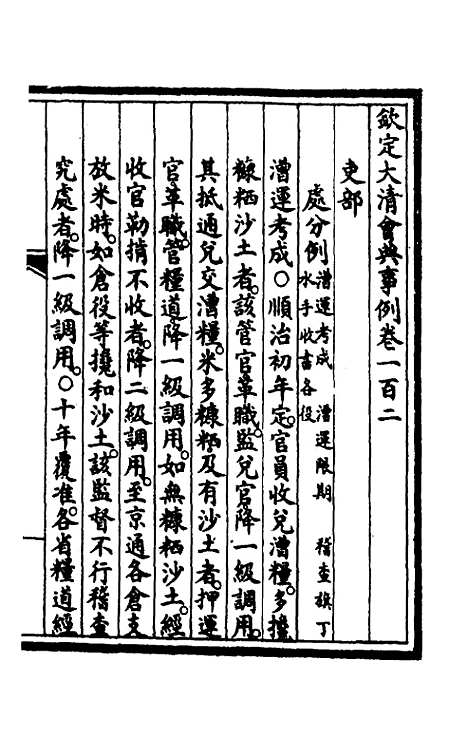 欽定大清會典事例卷一百二
吏部
處分例漕運考成　漕運限期　稽查旗丁
水手收書各役
漕運考成○順治初年定。官員收兌漕糧。多攙
糠粞沙土者。該管官革職。監兌官降一級調用。
其抵通兌交漕糧。米多糠粞及有沙土者。押運
官革職。管糧道降一級調用。如無糠粞沙土。經
收官勒掯不收者。降二級調用。至京通各倉支
放米時。如倉役等攙和沙土。該監督不行稽查
究處者。降一級調用。○十年覆准。各省糧道經